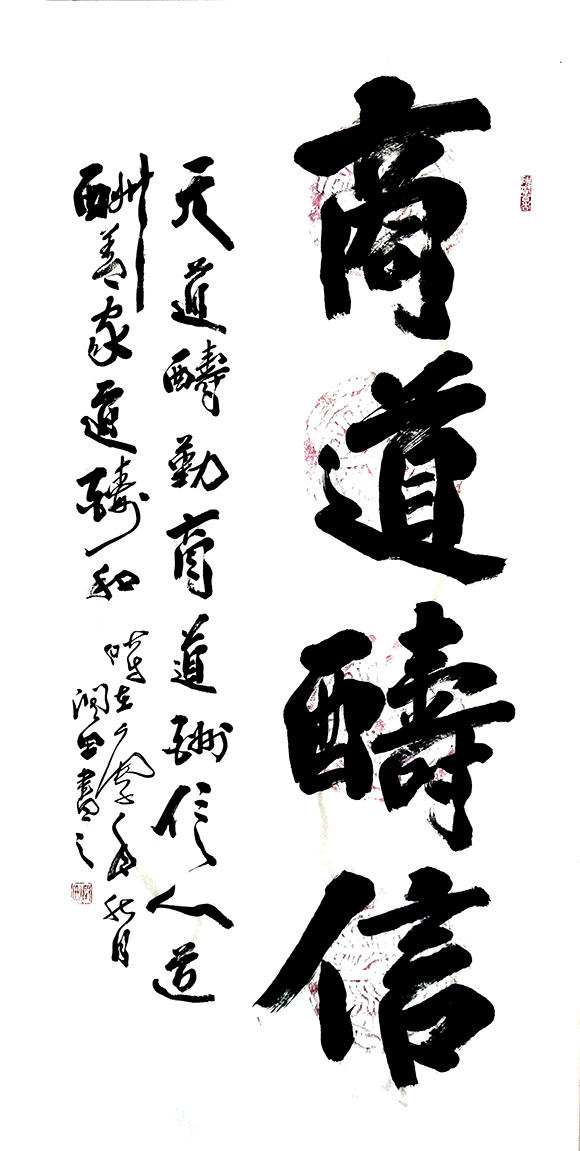 商道醻信
天道醻勤商道酬信人道
酬善家道醻和
時在年秋月
潤書之